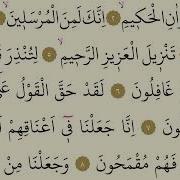 اٰنِ الْحَكِيمِۙ ٢ اِنَّكَ لَمِنَ الْمُرْسَلِينَۙ
تَنْزِيلَ الْعَزِيزِ الرَّحِيمِۙ ٥ لِتُنْذِرَ
غَافِلُونَ ٦ لَقَدْ حَقَّ الْقَوْلُ
ونَ ٧ اِنَّا جَعَلْنَا فِٓى اَعْنَاقِهِمْ
فَهُمْ مُقْمَحُونَ ٨ وَجَعَلْنَا مِنْ